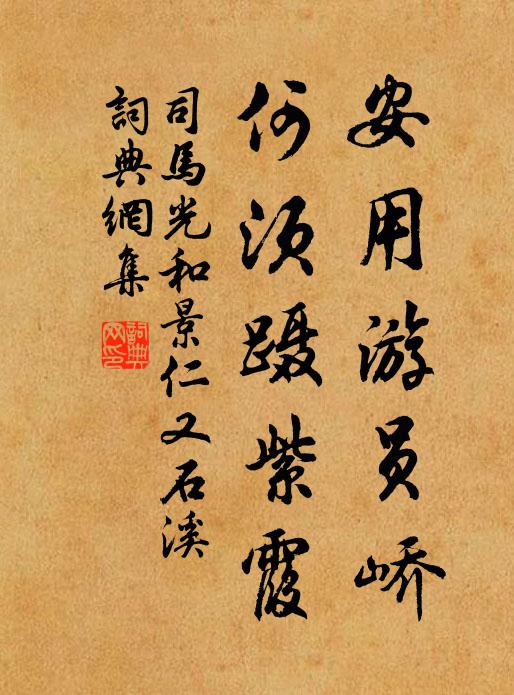 安用游员峤
何须蹑紫霞
司馬光和景仁又石溪
詞典網集
詞典网印